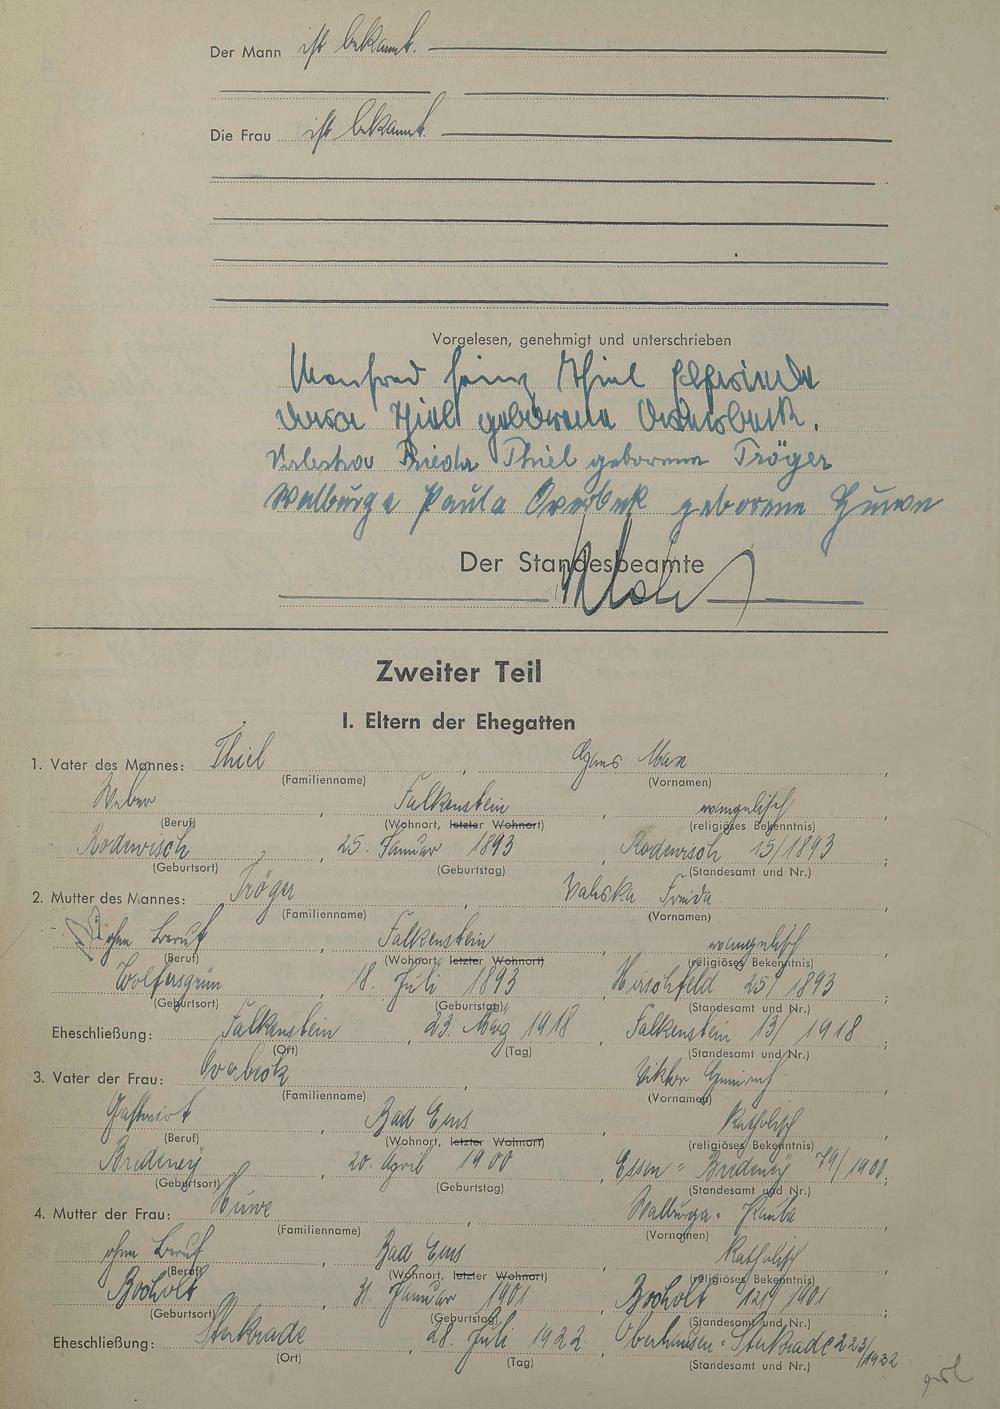 Der Mann ist bekannt.
Die Frau ist bekannt.
Vorgelesen, genehmigt und unterschrieben
Manfred Heinz Thiel
Thiel geborene
Valeska Frieda Thiel geborene Tröger
Walburga Paula Overbeck geborene Huwe
Der Standesbeamte
Zweiter Teil
I. Eltern der Ehegatten
1. Vater des Mannes: Thiel, Max,
(Familienname) (Vornamen)
Weber, Falkenstein, evangelisch,
(Beruf) (Wohnort, letzter Wohnort) (religiöses Bekenntnis)
Rodewisch, 25. Januar 1893, Rodewisch 15/1893;
(Geburtsort) (Geburtstag) (Standesamt und Nr.)
2. Mutter des Mannes: Tröger, Valeska Frieda,
(Familienname) (Vornamen)
ohne Beruf, Falkenstein, evangelisch,
(Beruf) (Wohnort, letzter Wohnort) (religiöses Bekenntnis)
Wolfersgrün, 18. Juli 1893, Hirschfeld 25/1893;
(Geburtsort) (Geburtstag) (Standesamt und Nr.)
Eheschließung: Falkenstein, 23. März 1918, Falkenstein 13/1918;
(Ort) (Tag) (Standesamt und Nr.)
3. Vater der Frau: Overbeck, Viktor Heinrich,
(Familienname) (Vornamen)
Gastwirt, Bad Ems, katholisch,
(Beruf) (Wohnort, letzter Wohnort) (religiöses Bekenntnis)
Bredeney, 20. April 1900, Essen-Bredeney 79/1900;
(Geburtsort) (Geburtstag) (Standesamt und Nr.)
4. Mutter der Frau: Huwe, Walburga-Paula,
(Familienname) (Vornamen)
ohne Beruf, Bad Ems, katholisch,
(Beruf) (Wohnort, letzter Wohnort) (religiöses Bekenntnis)
Bocholt, 31. Januar 1901, Bocholt 121/1901;
(Geburtsort) (Geburtstag) (Standesamt und Nr.)
Eheschließung: Sterkrade, 28. Juli 1922, Oberhausen-Sterkrade 223/1922
(Ort) (Tag) (Standesamt und Nr.)